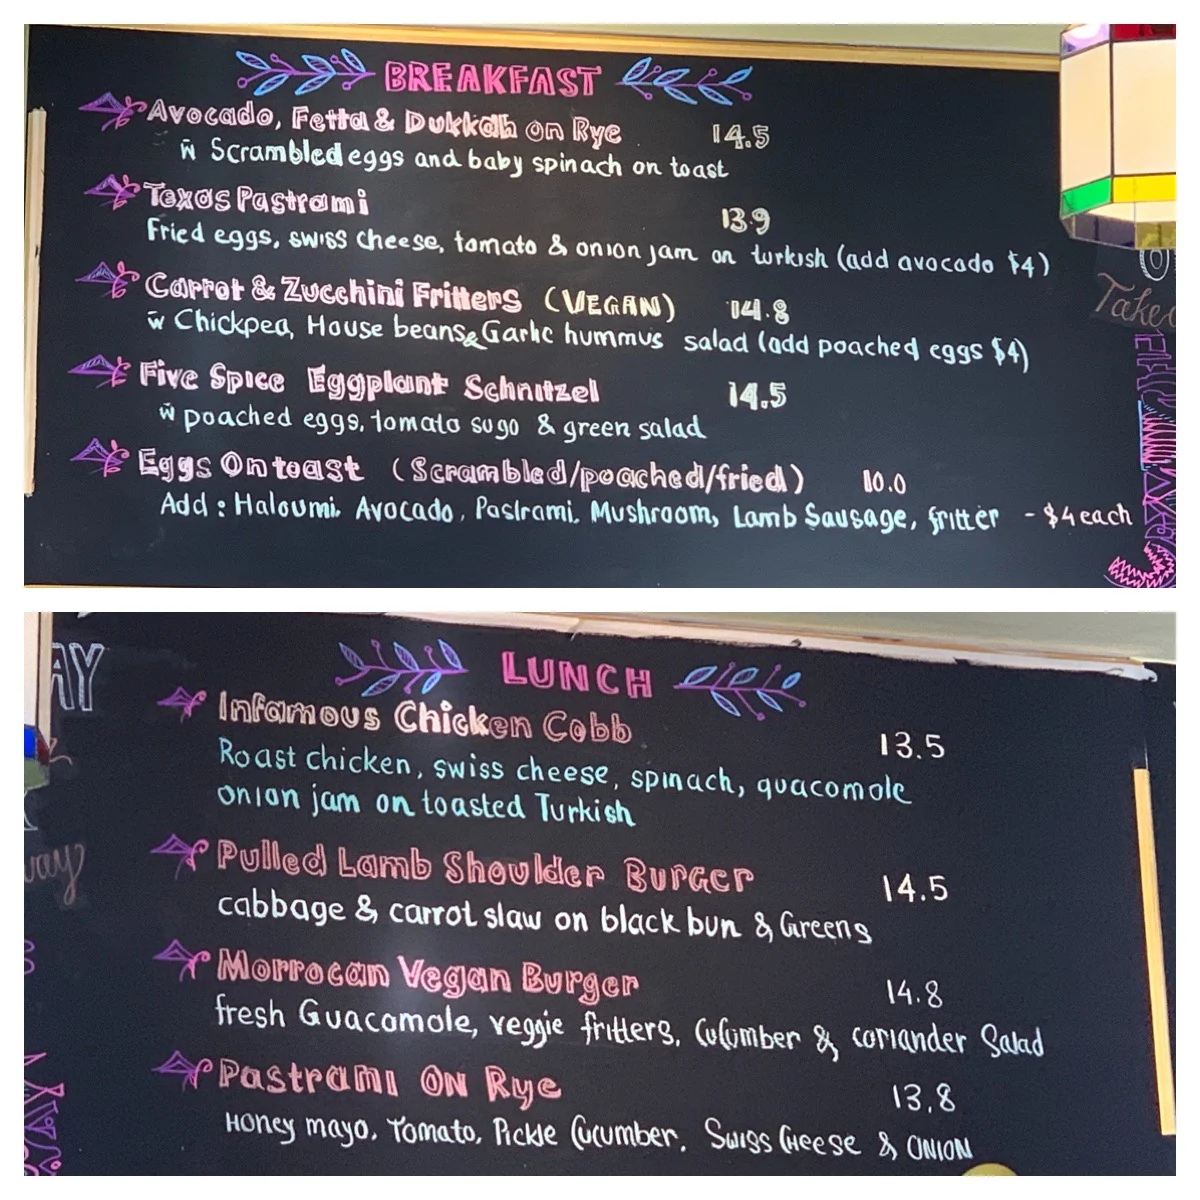 BREAKFAST
Avocado, Fetta & Dukkah on Rye 14.5
w̄ Scrambled eggs and baby spinach on toast
Texas Pastrami 13.9
Fried eggs, swiss cheese, tomato & onion jam on turkish (add avocado $4)
Carrot & Zucchini Fritters (VEGAN) 14.8
w̄ Chickpea, House beans & Garlic hummus salad (add poached eggs $4)
Five Spice Eggplant Schnitzel 14.5
w̄ poached eggs, tomato sugo & green salad
Eggs On toast (Scrambled/poached/fried) 10.0
Add : Haloumi, Avocado, Pastrami, Mushroom, Lamb Sausage, fritter - $4 each
Take
AY
LUNCH
Infamous Chicken Cobb 13.5
Roast chicken, swiss cheese, spinach, guacomole
onion jam on toasted Turkish
way
Pulled Lamb Shoulder Burger 14.5
cabbage & carrot slaw on black bun & Greens
Morrocan Vegan Burger 14.8
fresh Guacomole, veggie fritters, Cucumber & coriander Salad
Pastrami ON Rye 13.8
Honey mayo, Tomato, Pickle Cucumber, Swiss Cheese & ONION